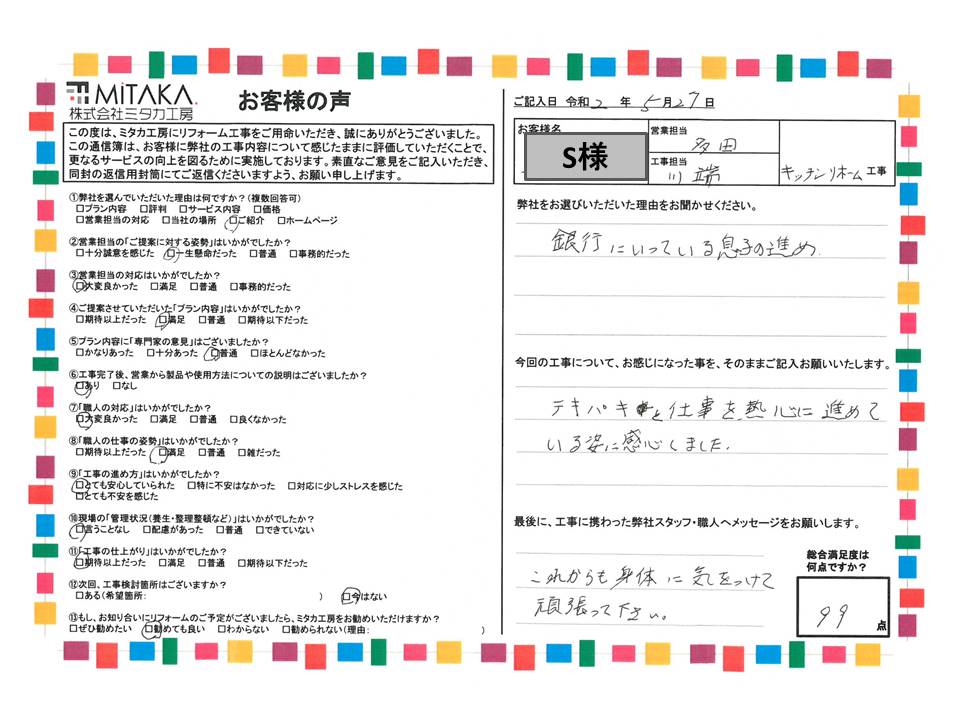 MITAKA.
株式会社ミタカ工房
お客様の声
この度は、ミタカ工房にリフォーム工事をご用命いただき、誠にありがとうございました。
この通信簿は、お客様に弊社の工事内容について感じたままに評価していただくことで、
更なるサービスの向上を図るために実施しております。素直なご意見をご記入いただき、
同封の返信用封筒にてご返信くださいますよう、お願い申し上げます。
①弊社を選んでいただいた理由は何ですか?(複数回答可)
□プラン内容 □評判 □サービス内容 □価格
□営業担当の対応 □当社の場所 □ご紹介 □ホームページ
②営業担当の「ご提案に対する姿勢」はいかがでしたか?
□十分誠意を感じた □一生懸命だった □普通 □事務的だった
③営業担当の対応はいかがでしたか?
□大変良かった □満足 □普通 □事務的だった
④ご提案させていただいた「プラン内容」はいかがでしたか?
□期待以上だった □満足 □普通 □期待以下だった
⑤プラン内容に「専門家の意見」はございましたか?
□かなりあった □十分あった □普通 □ほとんどなかった
⑥工事完了後、営業から製品や使用方法についての説明はございましたか?
□あり □なし
⑦「職人の対応」はいかがでしたか?
□大変良かった □満足 □普通 □良くなかった
⑧「職人の仕事の姿勢」はいかがでしたか?
□期待以上だった □満足 □普通 □雑だった
⑨「工事の進め方」はいかがでしたか?
□とても安心していられた □特に不安はなかった □対応に少しストレスを感じた
□とても不安を感じた
⑩現場の「管理状況(養生・整理整頓など)」はいかがでしたか?
□言うことなし □配慮があった □普通 □できていない
⑪「工事の仕上がり」はいかがでしたか?
□期待以上だった □満足 □普通 □期待以下だった
⑫次回、工事検討箇所はございますか?
□ある(希望箇所: ) □今はない
⑬もし、お知り合いにリフォームのご予定がございましたら、ミタカ工房をお勧めいただけますか?
□ぜひ勧めたい □勧めても良い □わからない □勧められない(理由: )
ご記入日 令和2年5月27日
お客様名
S様
営業担当
多田
工事担当
川端
キッチンリホーム 工事
弊社をお選びいただいた理由をお聞かせください。
銀行にいっている息子の進め
今回の工事について、お感じになった事を、そのままご記入お願いいたします。
テキパキと仕事を熱心に進めて
いる姿に感心しました。
最後に、工事に携わった弊社スタッフ・職人へメッセージをお願いします。
これからも身体に気をつけて
頑張って下さい。
総合満足度は
何点ですか?
99点